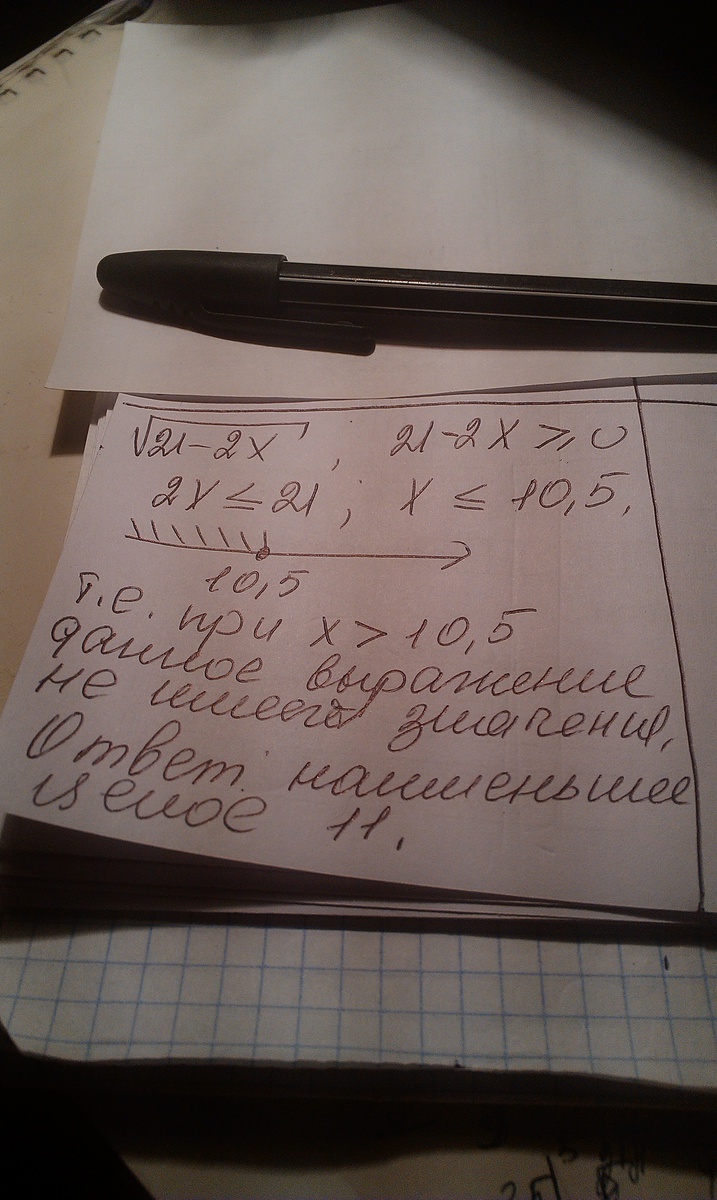 √21-2x ; 21-2x ≥ 0
2x ≤ 21 ; x ≤ 10,5.
10,5
т.е. при x > 10,5
данное выражение
не имеет значения.
Ответ наименьшее
целое 11.